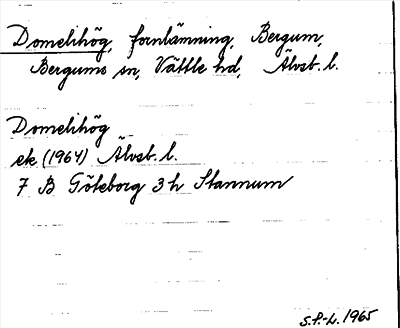 Domelihög, fornlämning, Bergum,
Bergums sn, Vättle hd, Älvsb. l.
Domelihög
ek (1964) Älvsb. l.
7 B Göteborg 3 h Stannum
S.P.-L. 1965